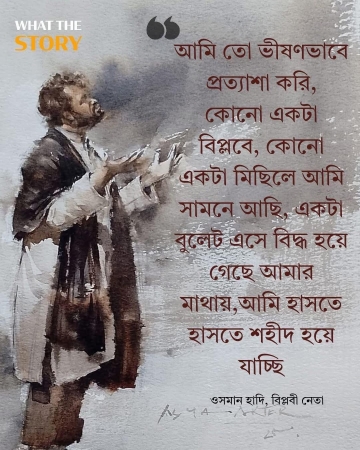 WHAT THE
STORY
আমি তো ভীষণভাবে
প্রত্যাশা করি,
কোনো একটা
বিপ্লবে, কোনো
একটা মিছিলে আমি
সামনে আছি, একটা
বুলেট এসে বিদ্ধ হয়ে
গেছে আমার
মাথায়,আমি হাসতে
হাসতে শহীদ হয়ে
যাচ্ছি
ওসমান হাদি, বিপ্লবী নেতা